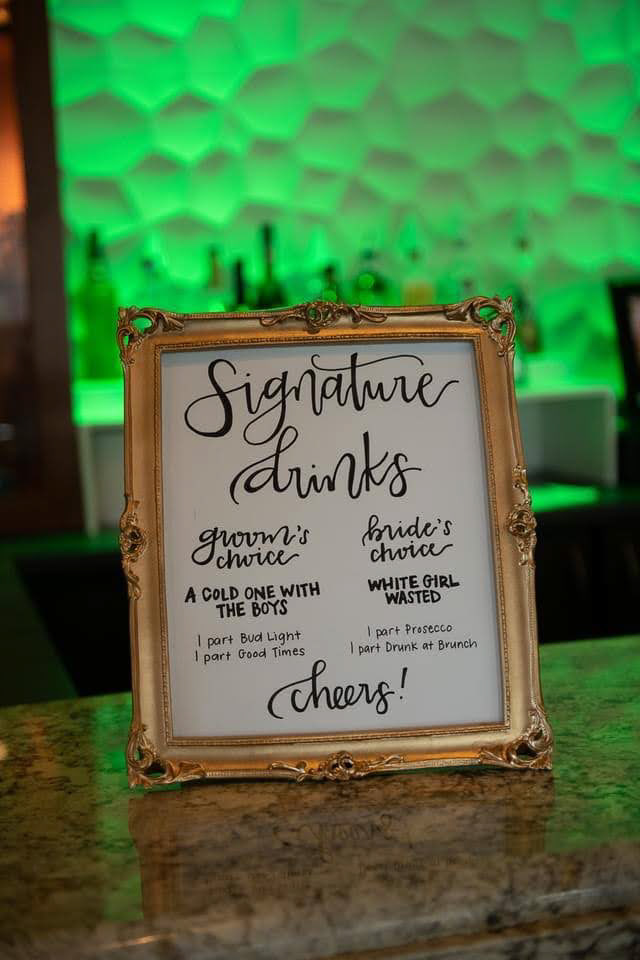 Signature
drinks
groom's
choice
A COLD ONE WITH
THE BOYS
1 part Bud Light
1 part Good Times
bride's
choice
WHITE GIRL
WASTED
1 part Prosecco
1 part Drunk at Brunch
cheers!